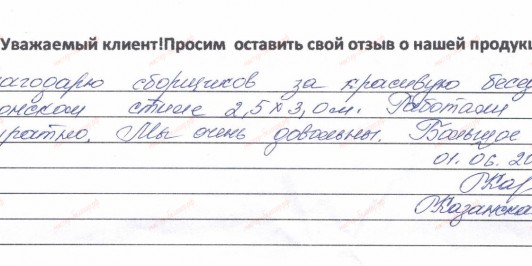 Уважаемый клиент!Просим оставить свой отзыв о нашей продукц
агодарю сборщиков за красивую бесед
онском стиле 2,5х3,0м. Работали
уратно. Мы очень довольны. Большое
01.06.20
Кар
Казанска